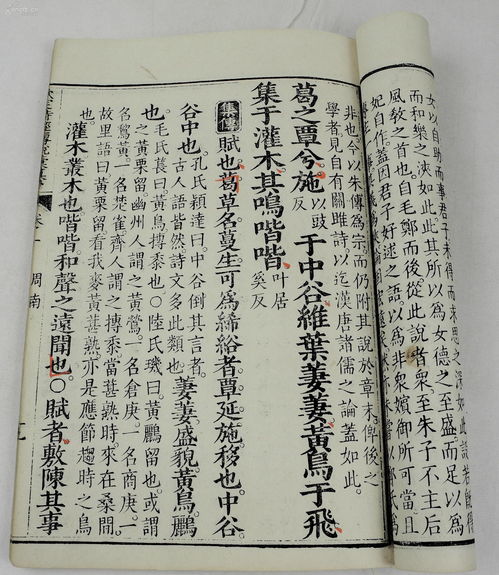 女以自助而事君子未得而求思之深如此既得
而和樂之浹如此此其所以為女德之至盛而足以為
風教之首也自毛鄭而後從此說者衆至朱子不主后
妃自作蓋因君子好逑之語以為非衆嬪御所可當且
非也今以朱傳為宗而仍附其說於章末俾後之
學者見自有關雎詩以迄漢唐諸儒之論蓋如此
葛之覃兮施以豉反于中谷維葉萋萋黃鳥于飛
集于灌木其鳴喈喈叶居奚反
集傳賦也葛草名蔓生可為絺綌者覃延施移也中谷
谷中也孔氏穎達曰中谷倒其言者古人語皆然詩文多此類也萋萋盛貌黃鳥鸝
也毛氏萇曰黃鳥摶黍也陸氏璣曰黃鸝留也或謂之黃栗留幽州人謂之黃鶯一名倉庚一名商庚一
名鵹黃一名楚雀齊人謂之摶黍當葚熟時來在桑間故里語曰黃栗留看我麥黃葚熟亦是應節趨時之鳥
也灌木叢木也喈喈和聲之遠聞也○賦者敷陳其事
卷一 周南